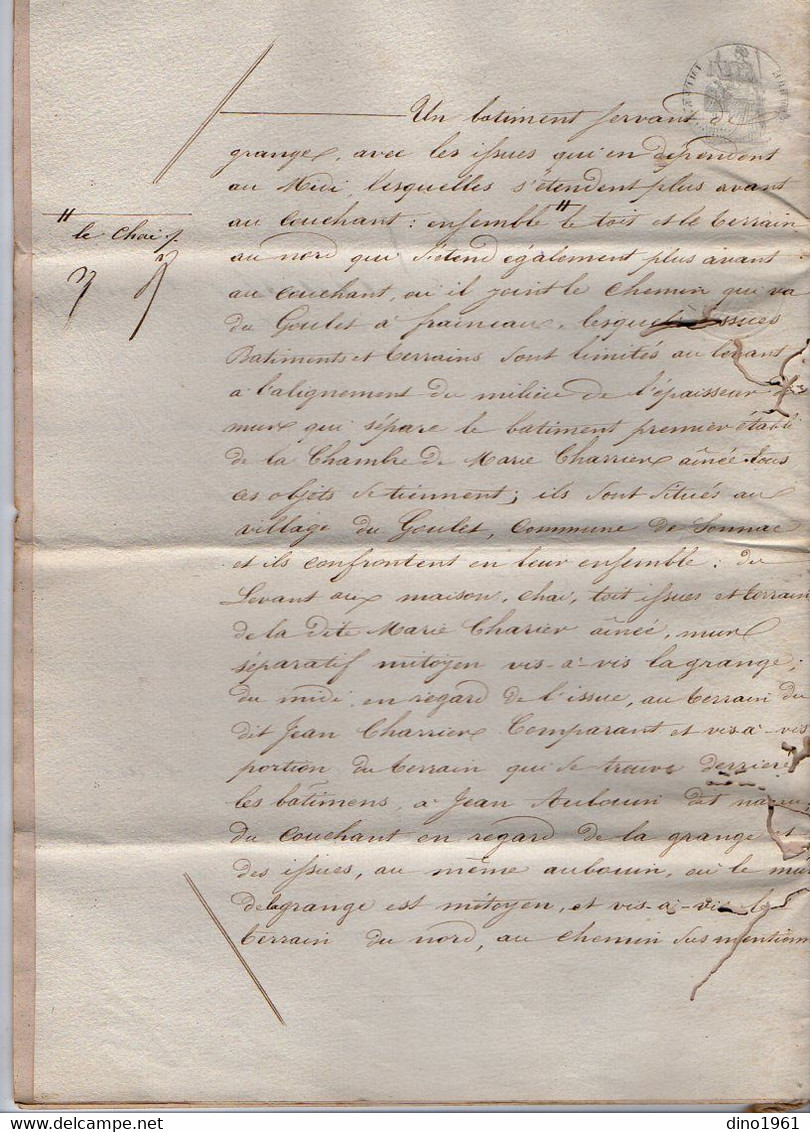 Un batiment servant de
grange, avec les issues qui en dépendent
au Midi, lesquelles s'étendent plus avant
au couchant : ensemble " le toit et le terrain
"
le chai /.
au nord qui s'étend également plus avant
au couchant, où il joint le chemin qui va
du Goulet à fraineau, lesquels issues
Batiments et terrains sont limités au levant
a l'alignement du milieu de l'épaisseur de
mur qui sépare le batiment premier établi
de la Chambre de Marie Charrier aînée. Tous
ces objets se tiennent ; ils sont situés au
village du Goulet, commune de Sonnac
et ils confrontent en leur ensemble : du
Levant aux maison, chai, toit issues et terrain
de la dite Marie Charier aînée, mur
séparatif mitoyen vis-à-vis la grange ;
du midi en regard de l'issue, au terrain du
dit Jean Charrier Comparant et vis-à-vis
portion du terrain qui se trouve derriere
les batimens, à Jean Aubouin dit
du couchant en regard de la grange et
des issues, au même aubouin, où le mur
de la grange est mitoyen, et vis-à-vis le
terrain du nord, au chemin sus mentionn
dino1961